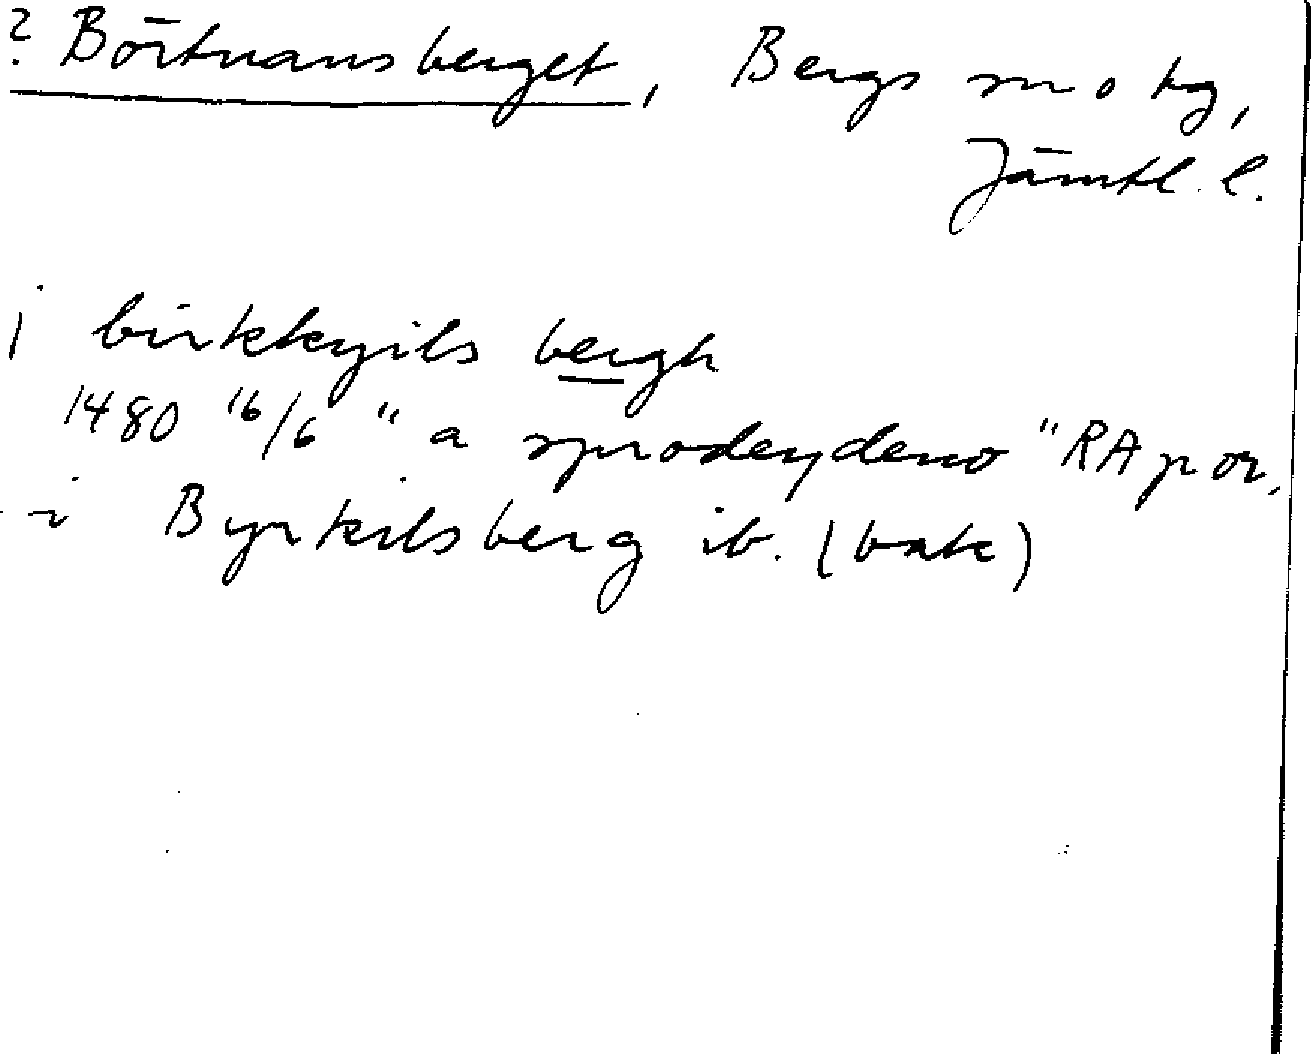 ? Börtnansberget, Bergs sn o tg,
Jämtl. l.
j birkkyils bergh
1480 16/6 "a sprodeydeno" RA p or.
- i Byrkilsberg ib. (bxk)